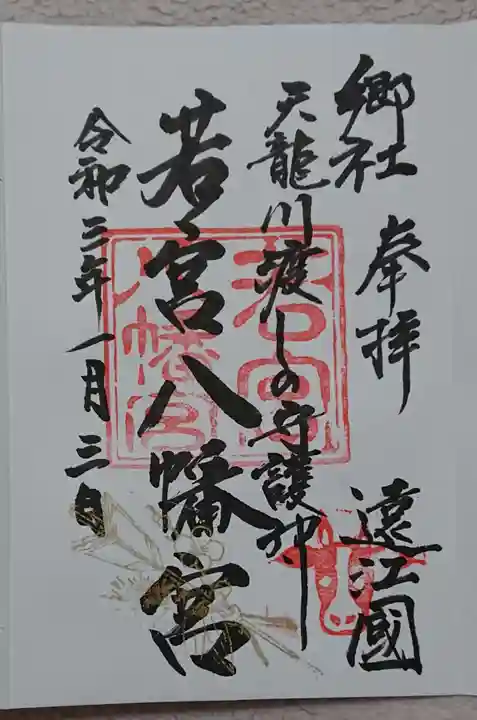 郷社 奉拝 遠江國
天龍川渡しの守護神
若宮八幡宮
令和三年一月三日
若宮
八幡宮